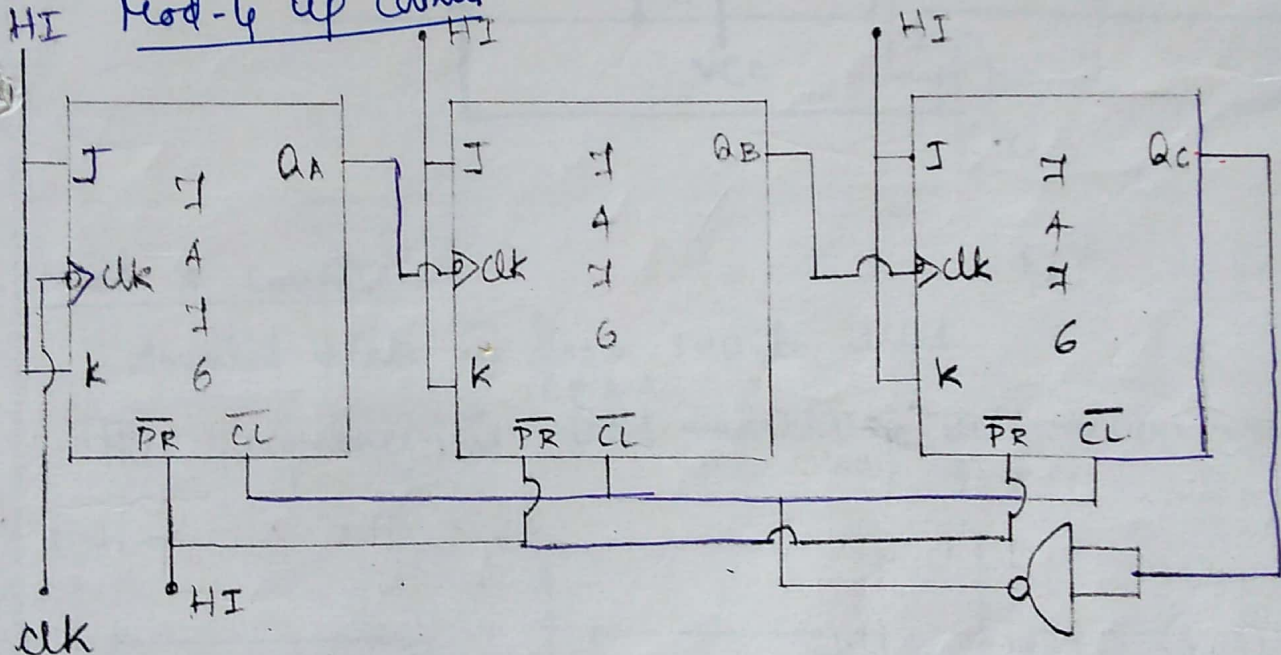 HI Mod-4 up
HI
HI
J 7 QA
4
clk 7
K 6
PR CL
J 7 QB
4
clk 7
6
K
PR CL
J 7 QC
4
clk 7
6
K
PR CL
HI
clk